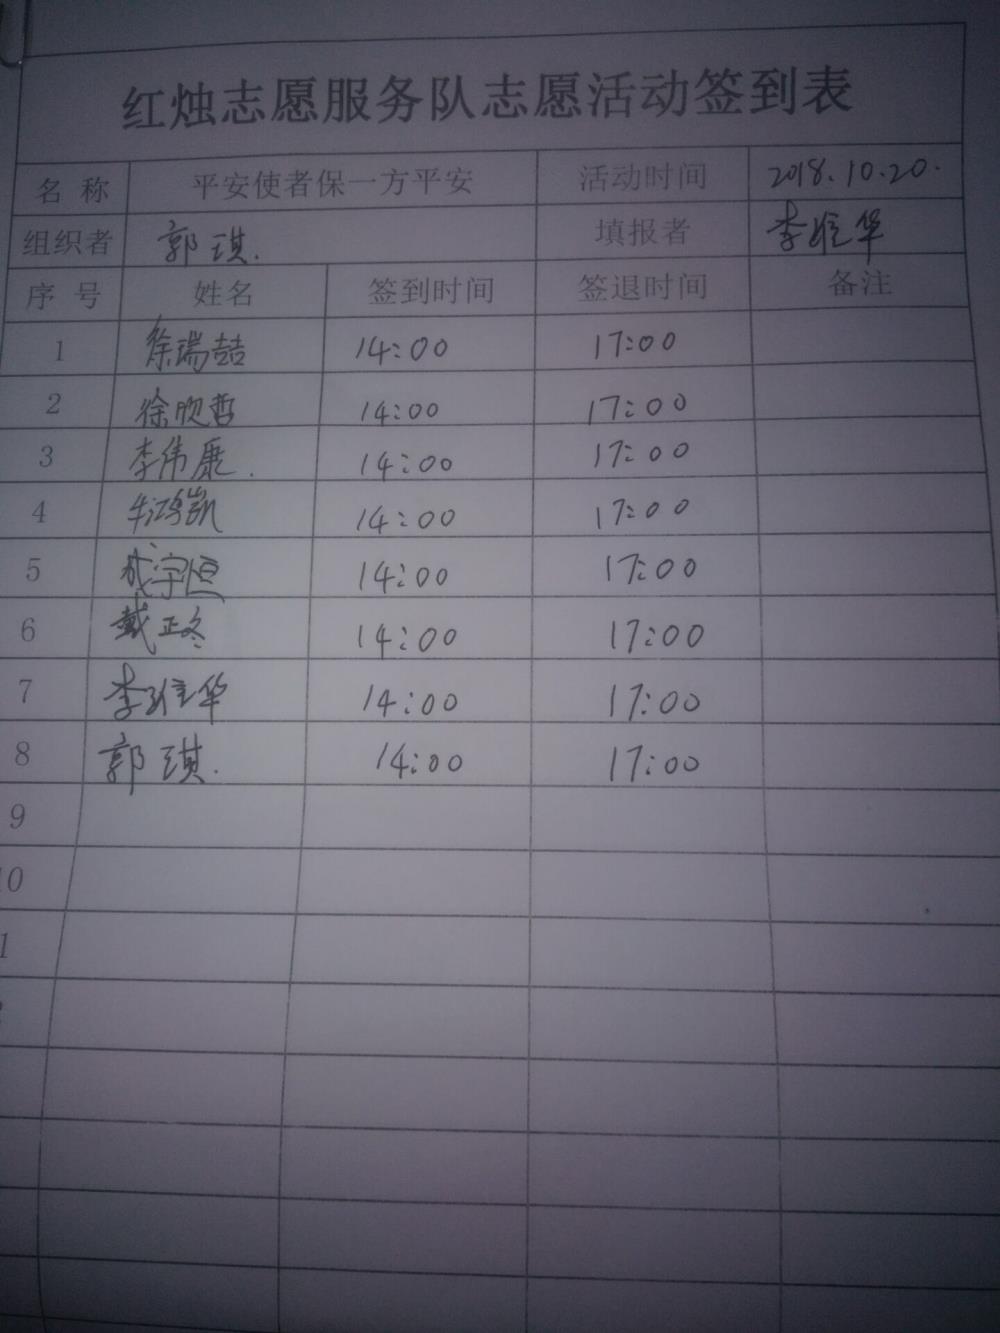 红烛志愿服务队志愿活动签到表
名 称 平安使者保一方平安 活动时间 2018.10.20.
组织者 郭琪. 填报者 李维华
序 号 姓名 签到时间 签退时间 备注
1 徐瑞喆 14:00 17:00
2 徐欣哲 14:00 17:00
3 李伟康. 14:00 17:00
4 牛鸿凯 14:00 17:00
5 成宇恒 14:00 17:00
6 戴正冬 14:00 17:00
7 李维华 14:00 17:00
8 郭琪. 14:00 17:00
9
10